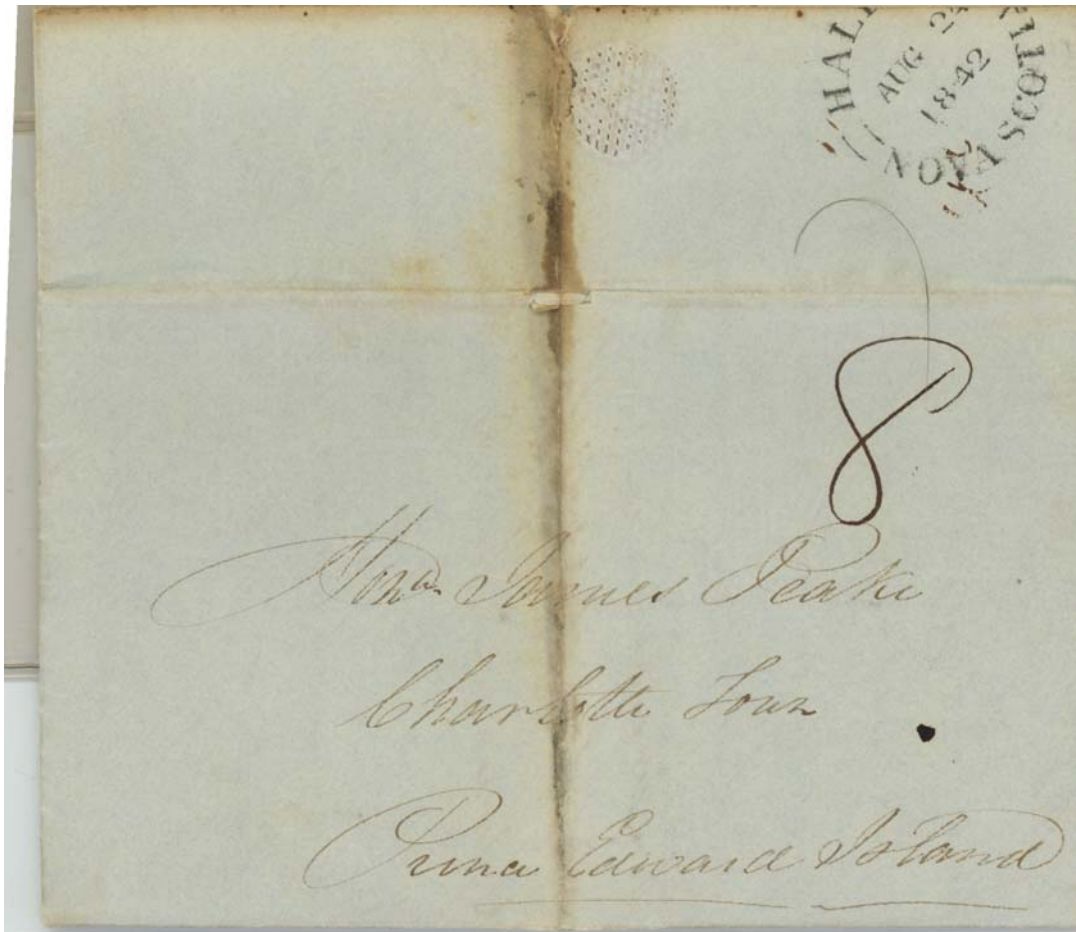 HAL
NOVA SCOTIA
AUG 2
1842
8
Honble James Peake
Charlotte Town
Prince Edward Island